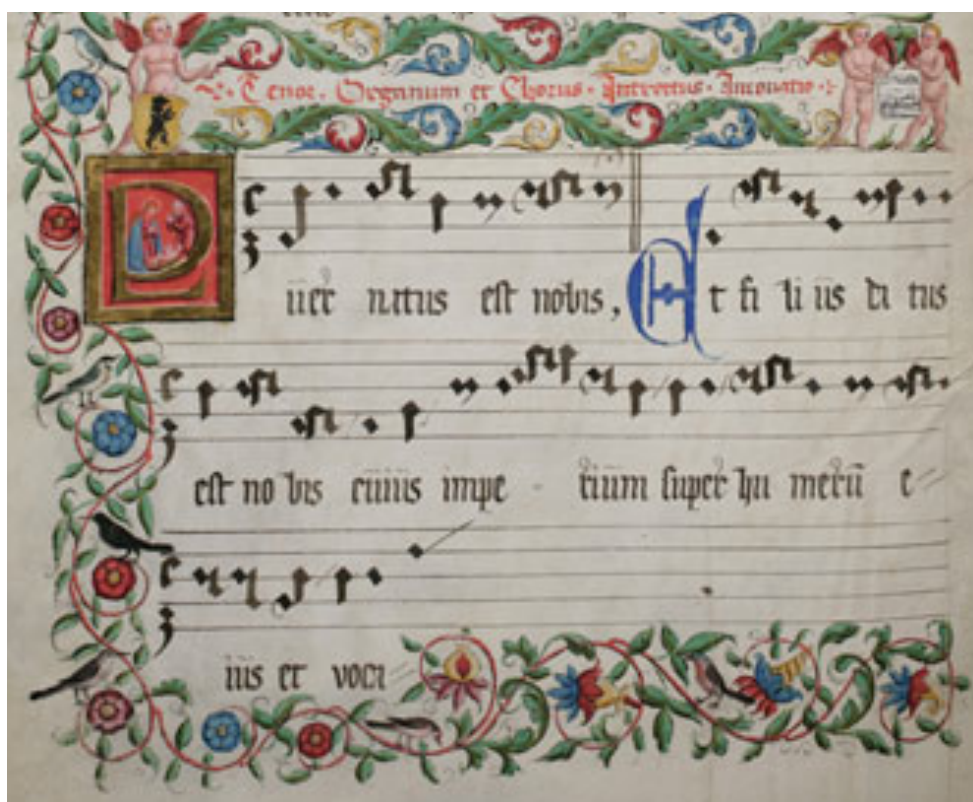 Tenor. Organum et Chorus. Introitus. Inconatio
Puer natus est nobis, Et fi li us da tus
est no bis cuius impe - rium super hu merū e
ius et voca